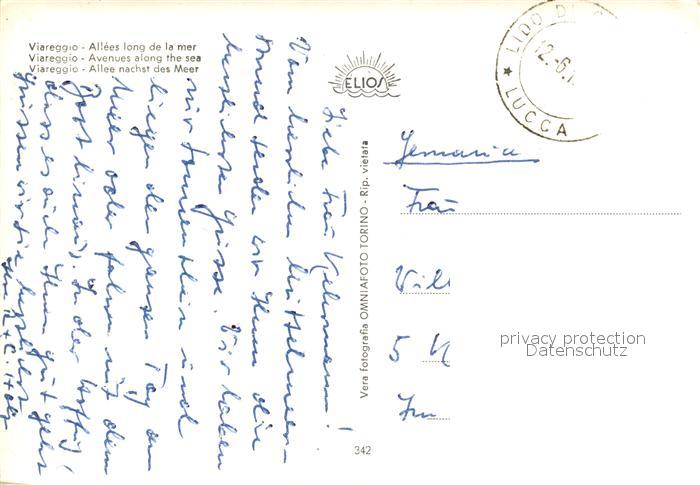 Viareggio - Allées long de la mer
Viareggio - Avenues along the sea
Viareggio - Allee nachst des Meer
ELIOS
LIDO DI C
12.-6.1
LUCCA
Liebe Frau
Vom herrlichen Mittelmeer-
strand senden wir Ihnen die
herzlichsten Grüsse. Wir haben
nur Sonnenschein und
liegen den ganzen Tag am
Meer oder fahren mit dem
Boot hinaus. In der Hoffng,
dass es auch Ihnen gut geht
grüssen wir Sie herzlichst
Vera fotografia OMNIAFOTO TORINO - Rip. vietata
342
Germania
Frau
Vill
5
privacy protection
Datenschutz